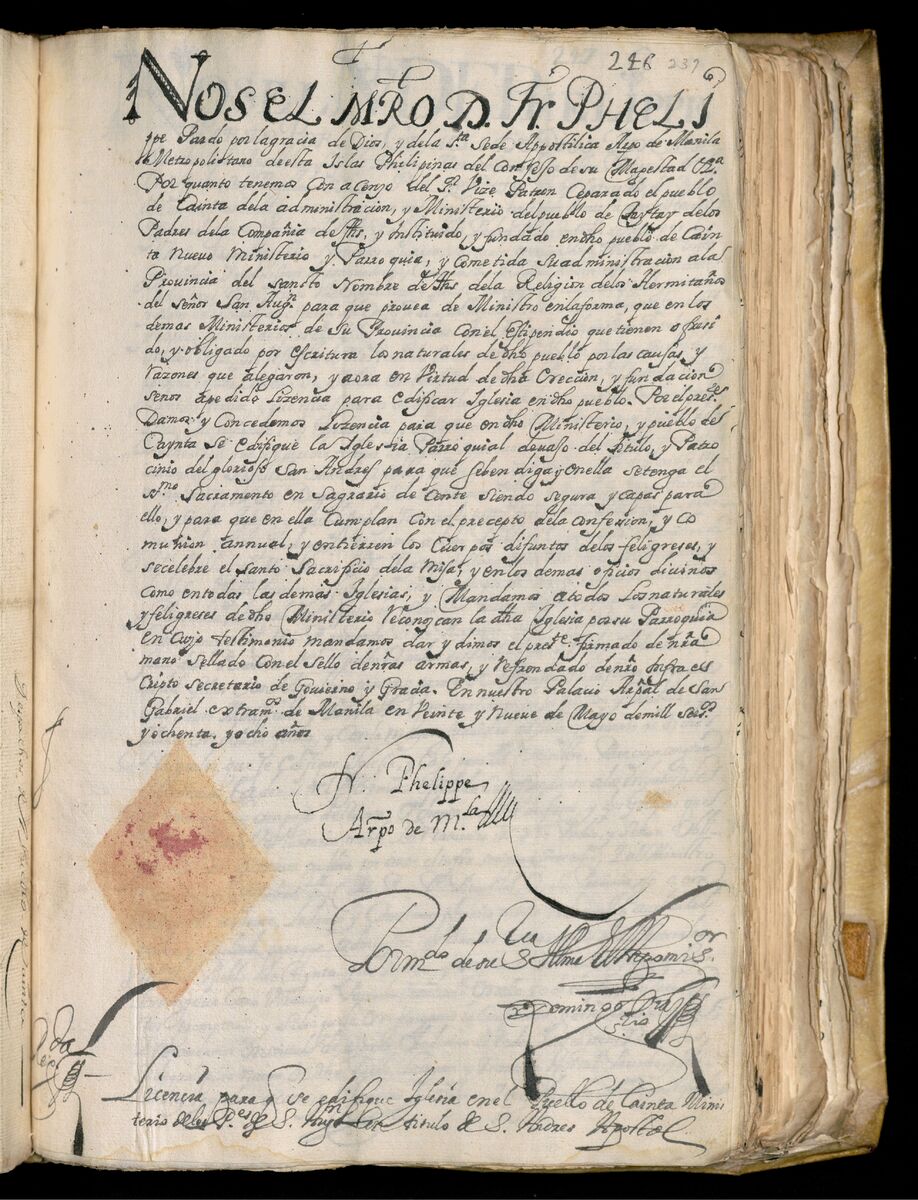 246 237
NOS EL MRO D. Fr PHELI
pe Pardo por la gracia de Dios, y de la Sta Sede Appostolica Arpo de Manila
Metropolitano de esta Islas Philipinas del Consejo de su Magestad
Por quanto tenemos Con acuerdo del Sr Vize Patron Ceparado el pueblo
de Cainta dela administracion, y Ministerio del pueblo de delos
Padres dela Compañia de Jhs, y Instituido, y fundado en dho pueblo de Cain
ta Nuevo Ministerio y Parroquia, y Cometida Su administracion ala
Provincia del santo Nombre de Jhs dela Religion delos Hermitaños
del señor San Augn para que provea de Ministro en la forma, que en los
demas Ministerios de Su Provincia Con el Estipendio que tienen ofresi
do, y obligado por escritura los naturales de dho pueblo por las causas, y
razones que alegaron, y aora en Virtud de dha Ereccion, y fundacion
se nos a pedido Lizencia para edificar Iglesia en dho pueblo. Por el preste
Damos y Concedemos Lizencia para que en dho Ministerio, y pueblo de
Caynta Se edifique la Iglesia Parroquial devajo del titulo, y Patro
cinio del glorioso San Andres para que se bendiga y en ella se tenga el
Ssmo Sacramento en Sagrario desente siendo segura y capas para
ello, y para que en ella Cumplan Con el precepto dela Confesion, y co
munion annual, y entierren los Cuerpos difuntos delos feligreses, y
se celebre el santo Sacrificio dela Misa, y en los demas oficios divinos
como en todas las demas Iglesias, y Mandamos a todos los naturales
y feligreses de dho Ministerio reconoscan la dha Iglesia por su Parroquia
en cuyo testimonio mandamos dar y dimos el preste firmado de nra
mano sellado Con el Sello de nras armas, y refrendado de nro infraes
cripto secretario de Govierno y Gracia. En nuestro Palacio Arpal de San
Gabriel extrams de Manila en Veinte y Nueve de Mayo de mill seisos
y ochenta y ocho años
Fr. Phelippe
Arpo de Mla
Por mdo de su Sa Illma el Arpo mi Sor
Domingo
Licencia para q se edifique Iglesia en el Puello de Cainta Minis
terio de los Pes de S. Augn Con titulo de S. Andres Apostol